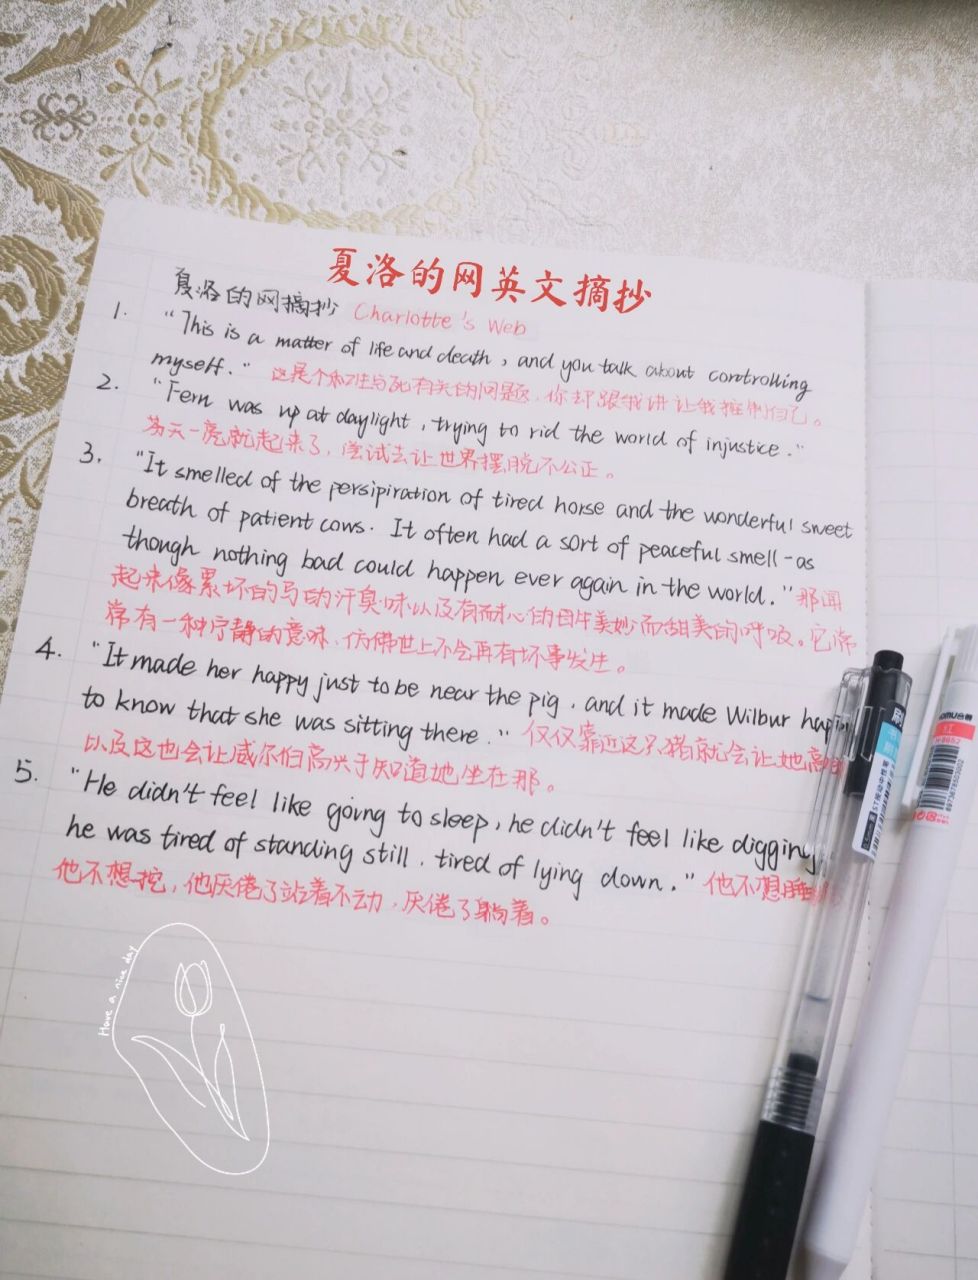 夏洛的网英文摘抄
夏洛的网摘抄 Charlotte's Web
1. "This is a matter of life and death, and you talk about controlling
myself." 这是个和生与死有关的问题，你却跟我讲让我控制自己。
2. "Fern was up at daylight, trying to rid the world of injustice."
芬天一亮就起来了，尝试去让世界摆脱不公正。
3. "It smelled of the persipiration of tired horse and the wonderful sweet
breath of patient cows. It often had a sort of peaceful smell-as
though nothing bad could happen ever again in the world." 那闻
起来像累坏的马的汗臭味以及有耐心的母牛美妙而甜美的呼吸。它常
常有一种宁静的意味，仿佛世上不会再有坏事发生。
4. "It made her happy just to be near the pig, and it made Wilbur happy
to know that she was sitting there." 仅仅靠近这只猪就会让她高
以及这也会让威尔伯高兴于知道她坐在那。
5. "He didn't feel like going to sleep, he didn't feel like digging,
he was tired of standing still, tired of lying down." 他不想睡
他不想挖，他厌倦了站着不动，厌倦了躺着。
Have a nice day